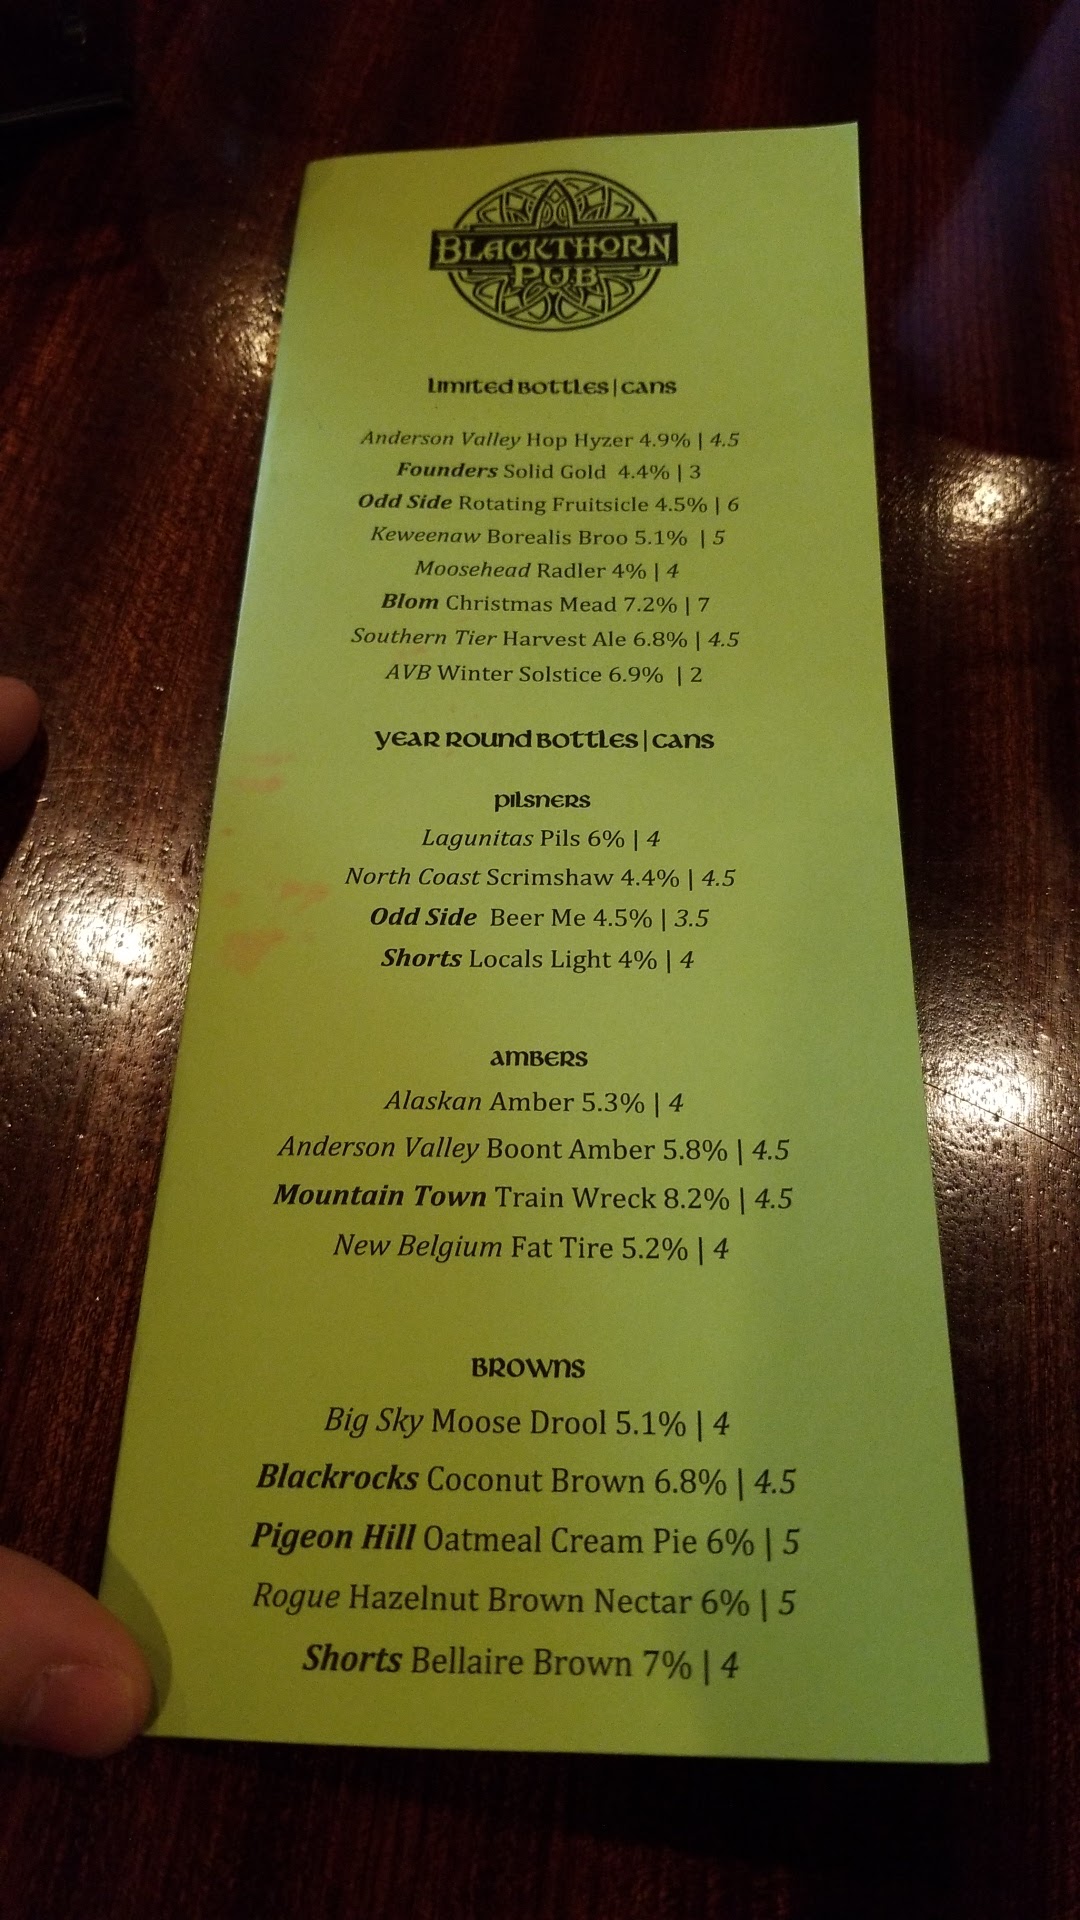 BLACKTHORN
PUB
Limited Bottles | Cans
Anderson Valley Hop Hyzer 4.9% | 4.5
Founders Solid Gold 4.4% | 3
Odd Side Rotating Fruitsicle 4.5% | 6
Keweenaw Borealis Broo 5.1% | 5
Moosehead Radler 4% | 4
Blom Christmas Mead 7.2% | 7
Southern Tier Harvest Ale 6.8% | 4.5
AVB Winter Solstice 6.9% | 2
Year Round Bottles | Cans
Pilsners
Lagunitas Pils 6% | 4
North Coast Scrimshaw 4.4% | 4.5
Odd Side Beer Me 4.5% | 3.5
Shorts Locals Light 4% | 4
Ambers
Alaskan Amber 5.3% | 4
Anderson Valley Boont Amber 5.8% | 4.5
Mountain Town Train Wreck 8.2% | 4.5
New Belgium Fat Tire 5.2% | 4
Browns
Big Sky Moose Drool 5.1% | 4
Blackrocks Coconut Brown 6.8% | 4.5
Pigeon Hill Oatmeal Cream Pie 6% | 5
Rogue Hazelnut Brown Nectar 6% | 5
Shorts Bellaire Brown 7% | 4